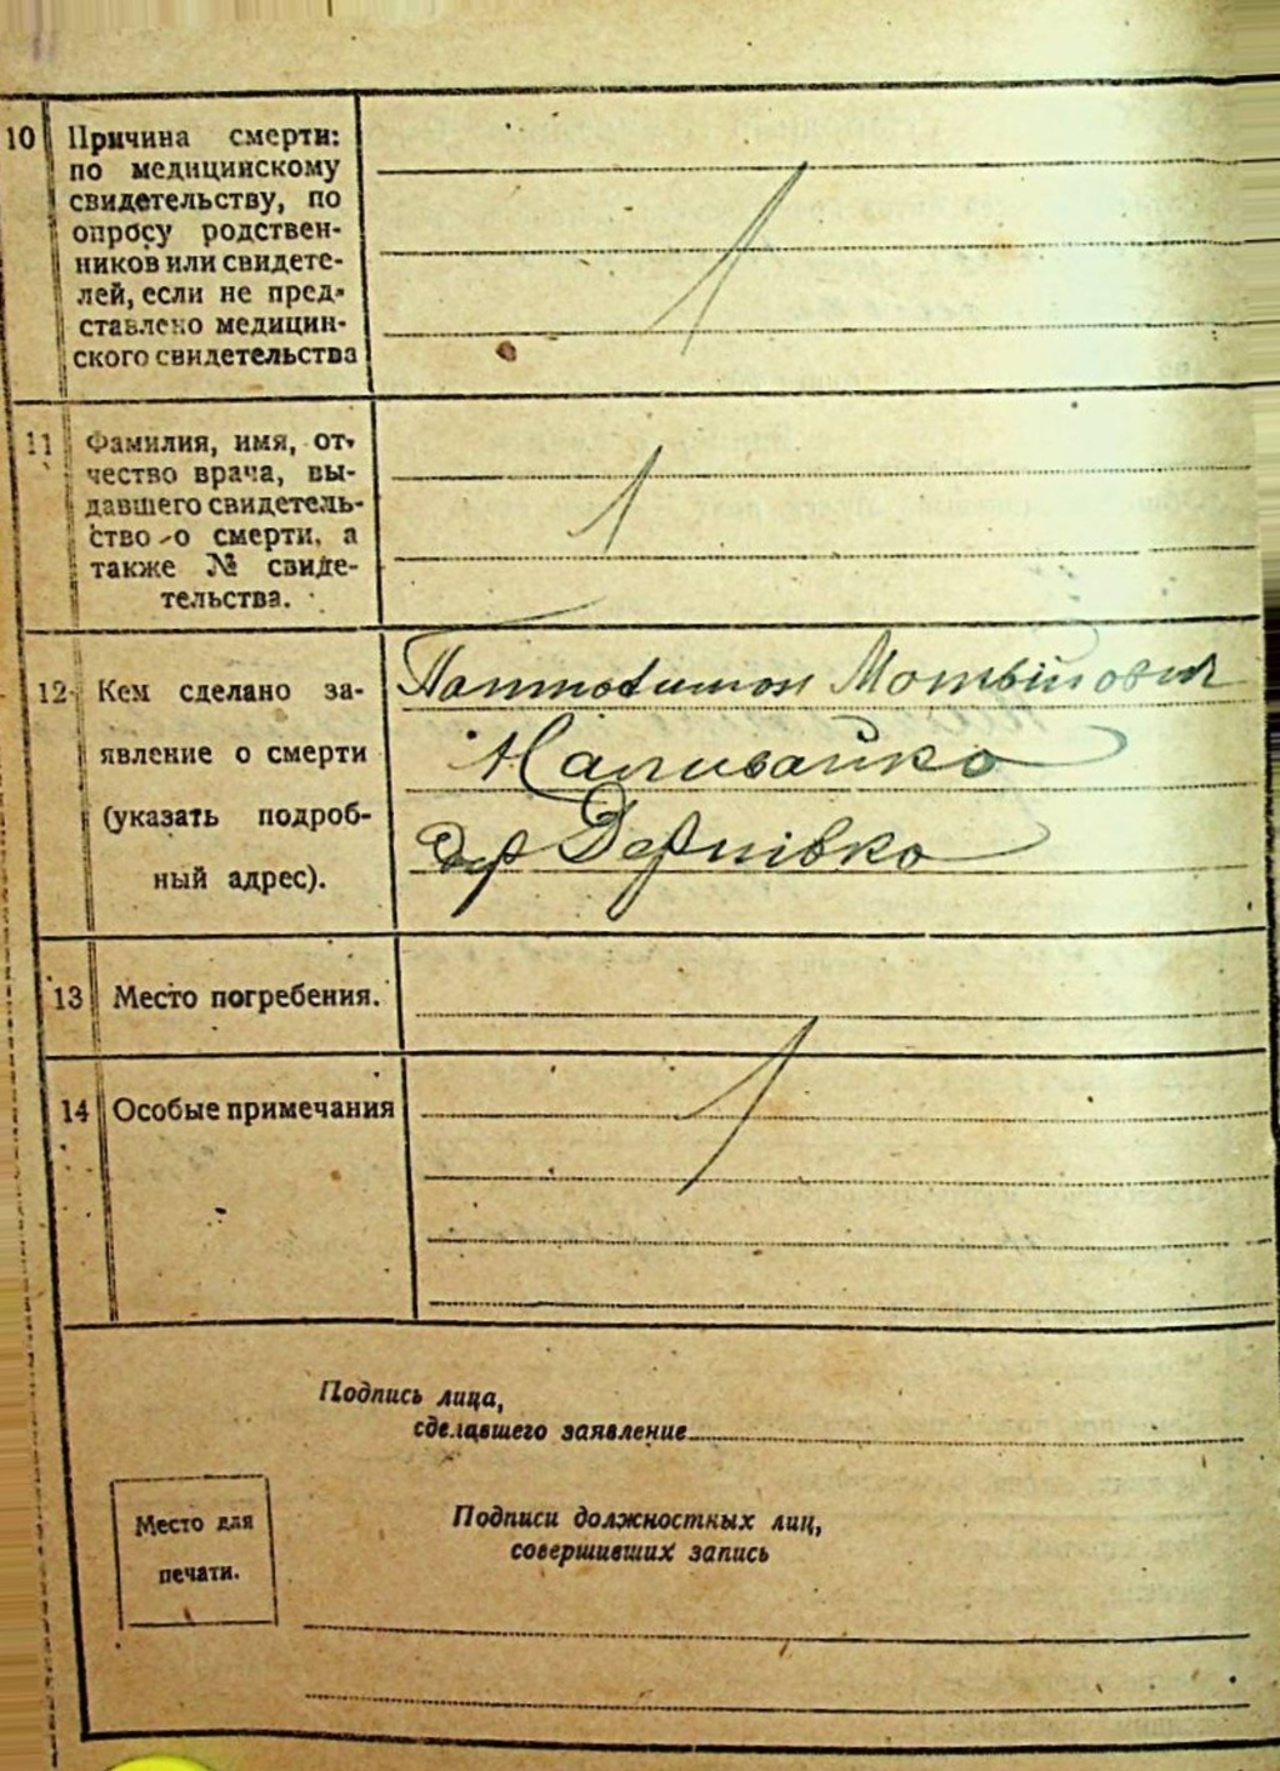 10 Причина смерти:
по медицинскому
свидетельству, по
опросу родствен-
ников или свидете-
лей, если не пред-
ставлено медицин-
ского свидетельства
11 Фамилия, имя, от-
чество врача, вы-
давшего свидетель-
ство о смерти, а
также № свиде-
тельства.
12 Кем сделано за-
явление о смерти
(указать подроб-
ный адрес).
Мотвійович
Наливайко
дер
13 Место погребения.
14 Особые примечания
Подпись лица,
сделавшего заявление
Место для
печати.
Подписи должностных лиц,
совершивших запись